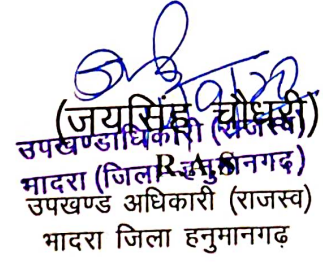 (जयसिंह चौधरी)
उपखण्डाधिकारी (राजस्व)
R.A.S
भादरा (जिला हनुमानगढ़)
उपखण्ड अधिकारी (राजस्व)
भादरा जिला हनुमानगढ़